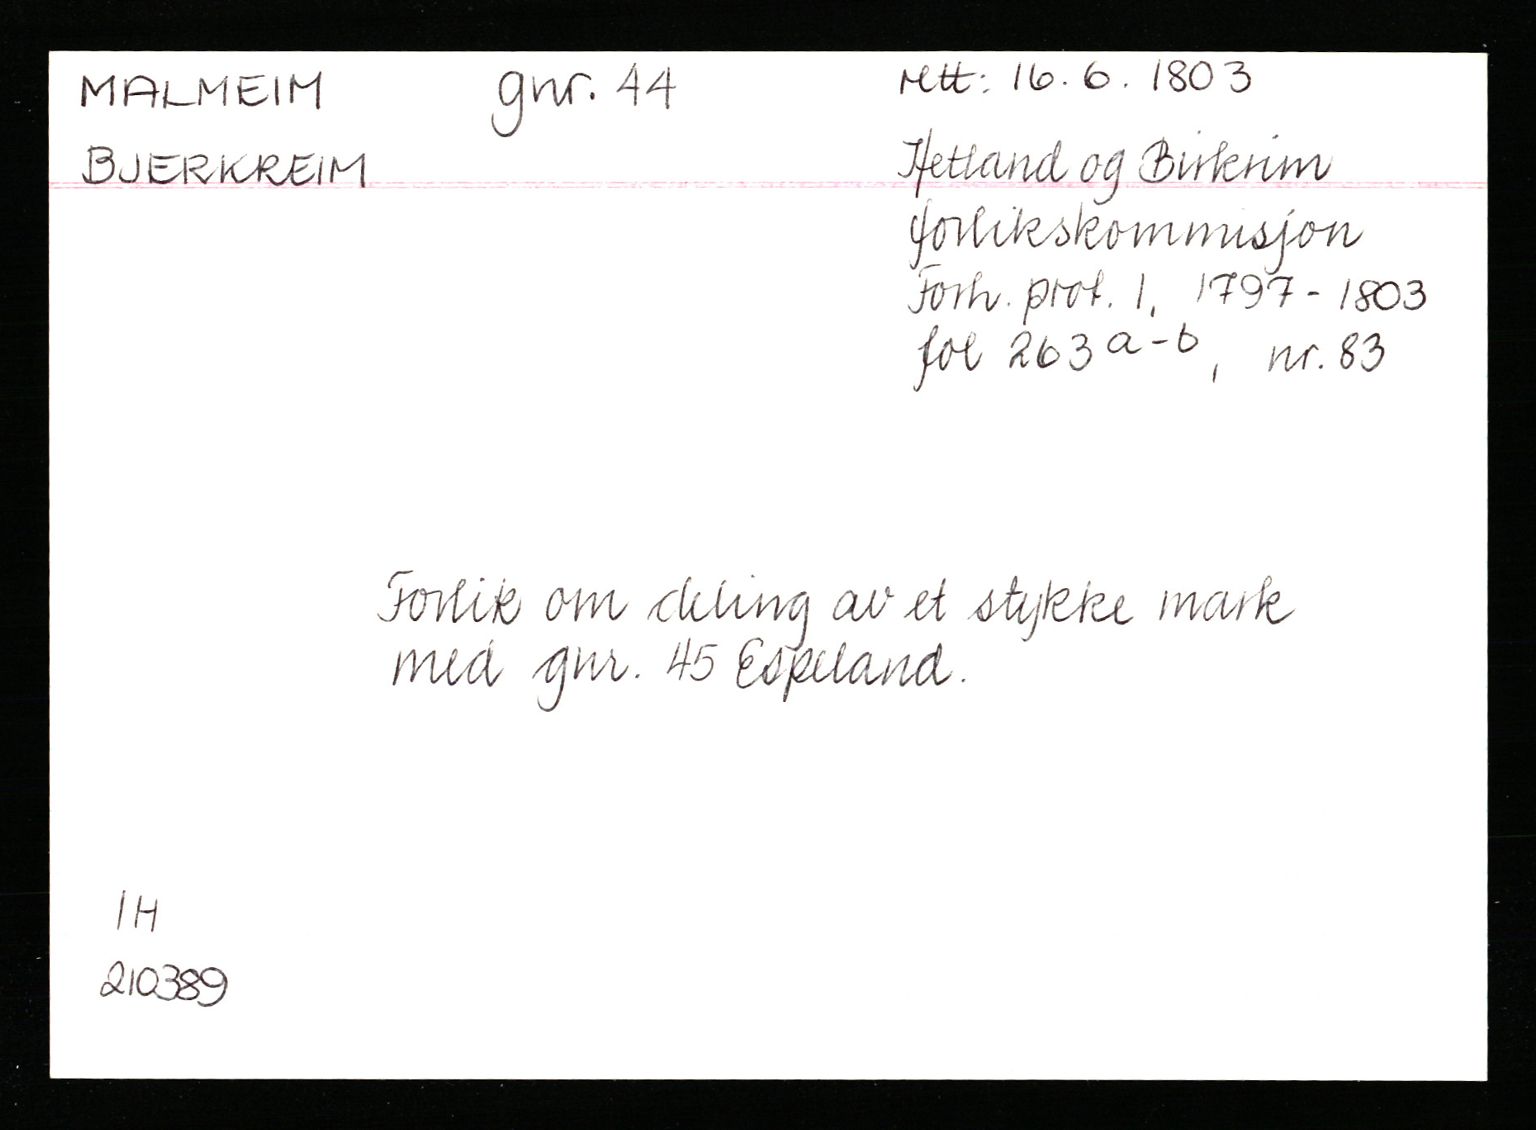 MALMEIM gnr. 44
BJERKREIM
rett: 16. 6. 1803
Hetland og Birkrim
forlikskommisjon
Forh. prot. 1, 1797-1803
fol 263 a-b, nr. 83
Forlik om deling av et stykke mark
med gnr. 45 Espeland.
IH
210389